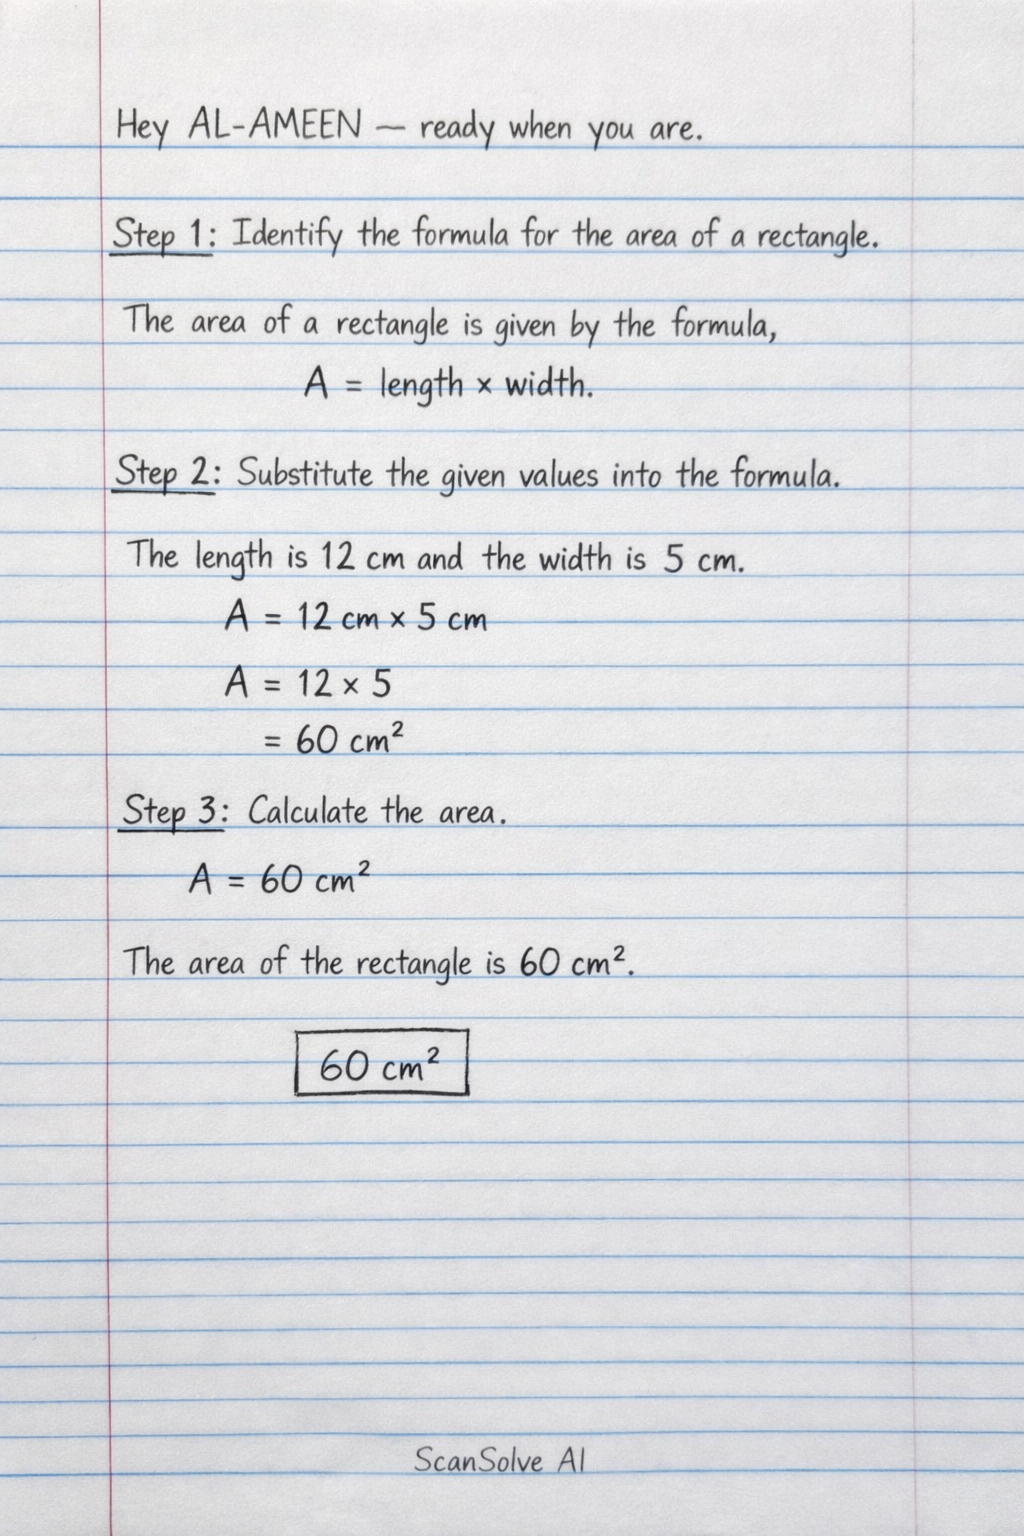 Hey AL-AMEEN — ready when you are.
Step 1: Identify the formula for the area of a rectangle.
The area of a rectangle is given by the formula,
A = length × width.
Step 2: Substitute the given values into the formula.
The length is 12 cm and the width is 5 cm.
A = 12 cm × 5 cm
A = 12 × 5
= 60 cm²
Step 3: Calculate the area.
A = 60 cm²
The area of the rectangle is 60 cm².
60 cm²
ScanSolve AI